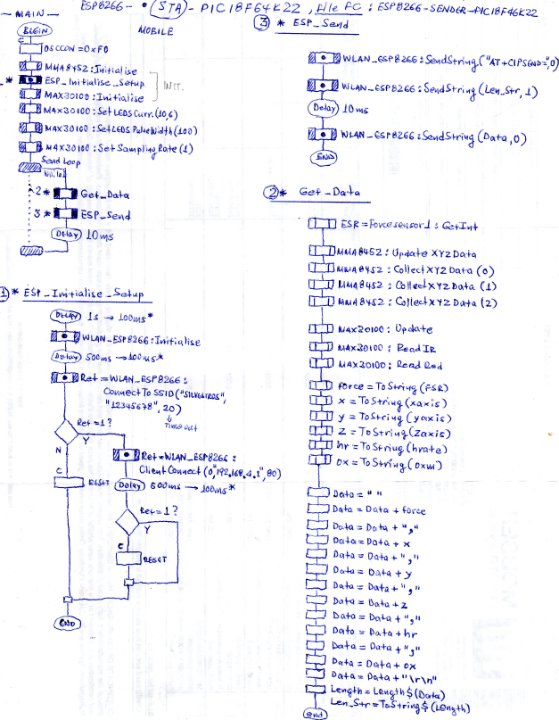 ESP8266-•(STA)-PIC18F64K22, File FC: ESP8266-SENDER-PIC18F46K22
MOBILE
-MAIN-
BEGIN
C
OSCCON=0xF0
MMA8452: Initialise
* ESP_Initialise_Setup
INIT.
MAX30100: Initialise
MAX30100: SetLEDS Curr.(10,6)
MAX30100: SetLEDS PulseWidth(100)
MAX30100: Set Sampling Rate(1)
Send Loop
2* Get_Data
3* ESP_Send
Delay 10ms
1* ESP_Initialise_Setup
Delay 1s → 100ms*
WLAN_ESP8266: Initialise
Delay 500ms → 100ms*
Ret = WLAN_ESP8266:
Connect To SSID (
"12345678", 20)
Time out
Ret=1?
N
Y
C
RESET
Ret=WLAN_ESP8266:
Client Connect (0,"192.168.4.1",80)
Delay 500ms → 100ms*
Ret=1?
Y
C
RESET
END
3 * ESP_Send
WLAN_ESP8266: SendString("AT+CIPSEND=",0)
WLAN_ESP8266: SendString(Len_Str,1)
Delay 10ms
WLAN_ESP8266: SendString(Data,0)
END
2* Get_Data
FSR=Forcesensor1: GetInt
MMA8452: Update XYZ Data
MMA8452: Collect XYZ Data (0)
MMA8452: Collect XYZ Data (1)
MMA8452: Collect XYZ Data (2)
MAX30100: Update
MAX30100: Read IR
MAX30100: Read Red
force = ToString(FSR)
x = ToString(xaxis)
y = ToString(yaxis)
z = ToString(zaxis)
hr = ToString(hrate)
ox = ToString(oxm)
Data = " "
Data = Data + force
Data = Data + ","
Data = Data + x
Data = Data + ","
Data = Data + y
Data = Data + ","
Data = Data + z
Data = Data + ","
Data = Data + hr
Data = Data + ","
Data = Data + ox
Data = Data + "\r\n"
Length = Length$(Data)
Len_Str = ToString$(Length)
end